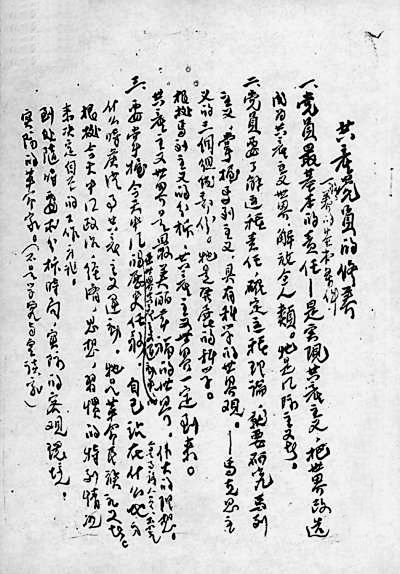 共产党员的修养
一、党员最基本的责任——是实现共产主义，把世界改造
成为共产主义世界，解放全人类。她是
二、党员要了解这种责任，确定这种理论，就要研究马列
主义，掌握马列主义，具有科学的世界观。——马克思主
义的三个组成部分。她是发展的科学。
根据马列主义的分析，共产主义世界一定到来。
共产主义世界是最美丽幸福的世界。伟大的理想。
三、要掌握今天中国的历史任务，自己站在什么地方
什么时候 共产主义运动。
根据今天中国政治，经济，思想，习惯的特别情况
来决定自己的工作方法。
到处随时要求分析时局，实际的客观环境。
实际的革命家。